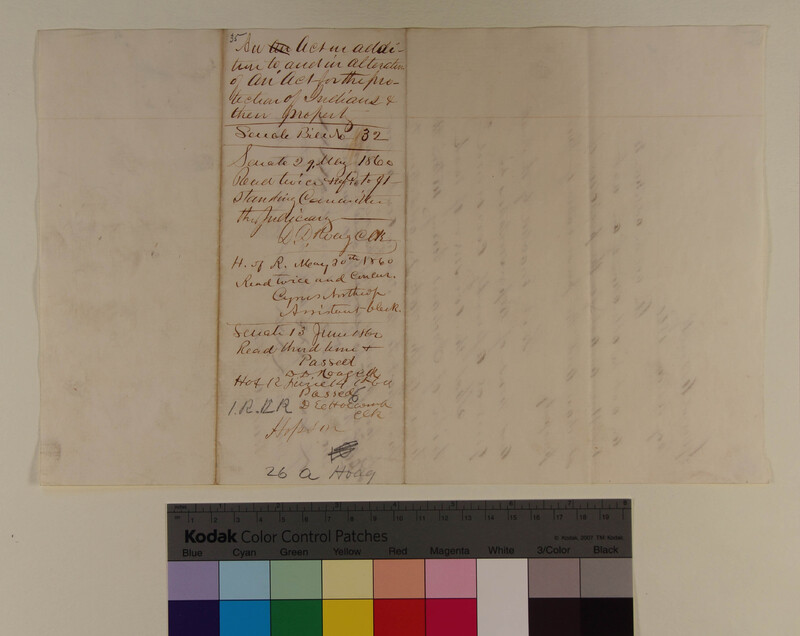 35
An Act in addi-
tion to and in alteration
of An Act for the pro-
tection of Indians &
their property
Senate Bill No 32
Senate 29 May 1860
Read twice & to Jt
Standing Committee
the Judiciary
Hoag Clk
H. of R. May 30th 1860
Read twice and Concur.
Cyrus Northrop
Assistant Clerk.
Senate 13 June 1860
Read third time &
Passed
Hoag Clk
H of R. June 14 1860
Passed
1. R. D R D E Holcomb
Clk
26 a Hoag
Kodak Color Control Patches
© Kodak, 2007 TM: Kodak
Blue Cyan Green Yellow Red Magenta White 3/Color Black